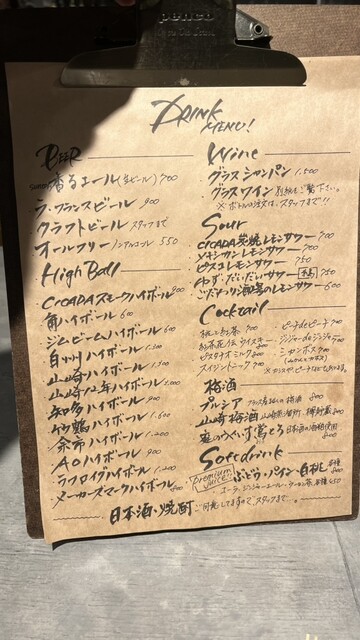 penco
DRINK
MENU!
BEER
香るエール(生ビール) 700
ラ・フランスビール 900
クラフトビール スタッフまで
オールフリー ノンアルコール 550
High Ball
CICADAスモークハイボール 900
角ハイボール 600
ジムビームハイボール 600
白州ハイボール
山崎ハイボール
山崎12年ハイボール
知多ハイボール 900
竹鶴ハイボール 1,600
余市ハイボール 1,200
AOハイボール 900
ラフロイグハイボール 1,200
メーカーズマークハイボール
Wine
グラスシャンパン 1,500
グラスワイン 別紙をご覧下さい。
※ボトルの注文は、スタッフまで!!
Sour
CICADA炭焼レモンサワー 700
メキシカンレモンサワー 700
ピスコレモンサワー 750
ゆず・だいだいサワー 750
こだわり酒場のレモンサワー 600
Cocktail
ピーチdeピーチ 700
ジンジャーdeジンジャー 700
お茶花伝ウイスキー
シャンボスク 700
ピスタチオミルク 800
スイジントニック 700
梅酒
プルシア フランス産 梅酒 800
山崎梅酒
庭のうぐいす鶯とろ 日本酒の酒粕使用
Softdrink
Premium Juice ぶどう・パイン・白桃
コーラ・ジンジャーエール・ウーロン茶 各種 450
日本酒・焼酎 ご用意してますので、スタッフまで…。